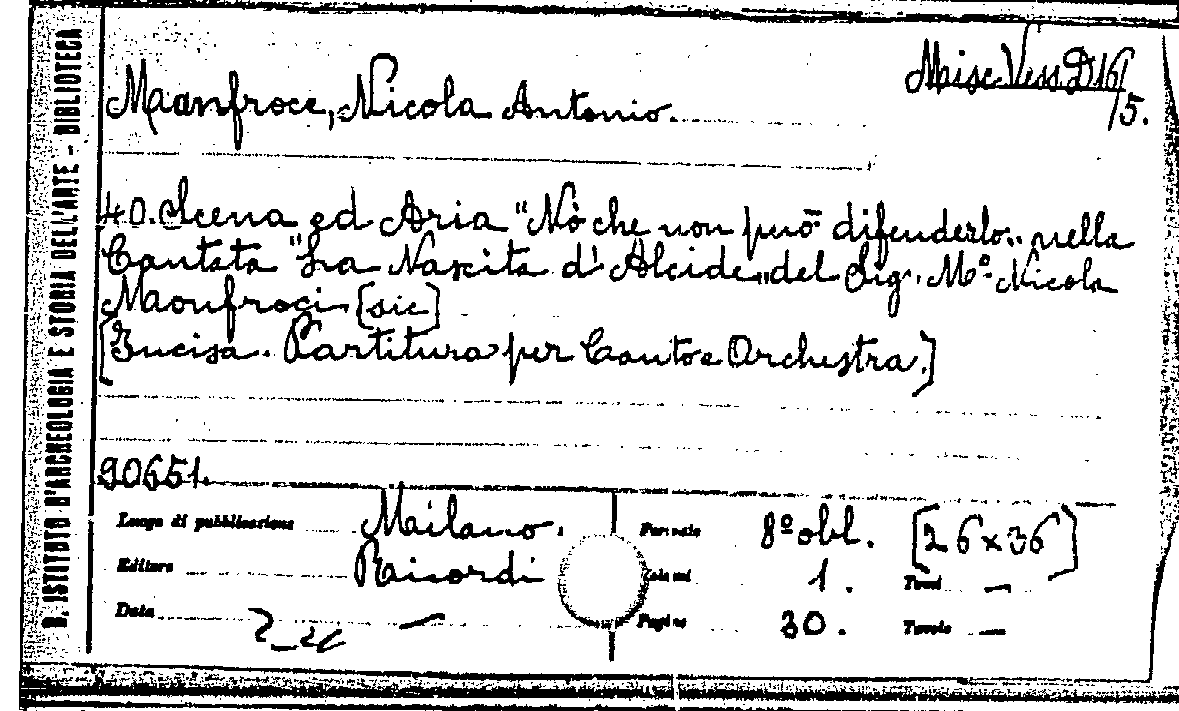 R. ISTITUTO D'ARCHEOLOGIA E STORIA DELL'ARTE - BIBLIOTECA
Misc. Vess. D 16/5.
Manfroce, Nicola Antonio.
40. Scena ed Aria "Nò che non può difenderlo" nella
Cantata "La Nascita d'Alcide" del Sig. Mº Nicola
Monfroci [sic]
[Incisa. Partitura per Canto e Orchestra.]
90651.
Luogo di pubblicazione Milano. Formato 8º obl. [26x36]
Editore Ricordi Volumi 1. Tomi —
Data — Pagine 30. Tavole —